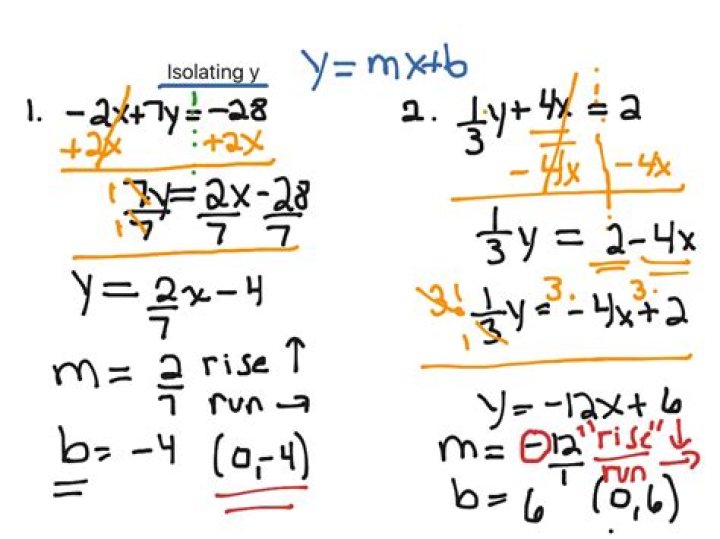 Isolating y y = mx+b
1. -2x+7y = -28
+2x +2x
1 7y = 2x - 28
1 7 7 7
y = 2/7 x - 4
m = 2/7 rise ↑
run →
b = -4 (0,-4)
2. 1/3 y + 4x = 2
- 4x - 4x
1/3 y = 2 - 4x
3. 1/3 y = 3. - 4x 3. + 2
1
y = -12x + 6
m = -12/1 "rise" ↓
run →
b = 6 (0,6)